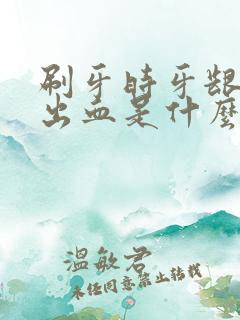 刷牙時牙龈
出血是什麼
溫敏君
未任同意禁止转载